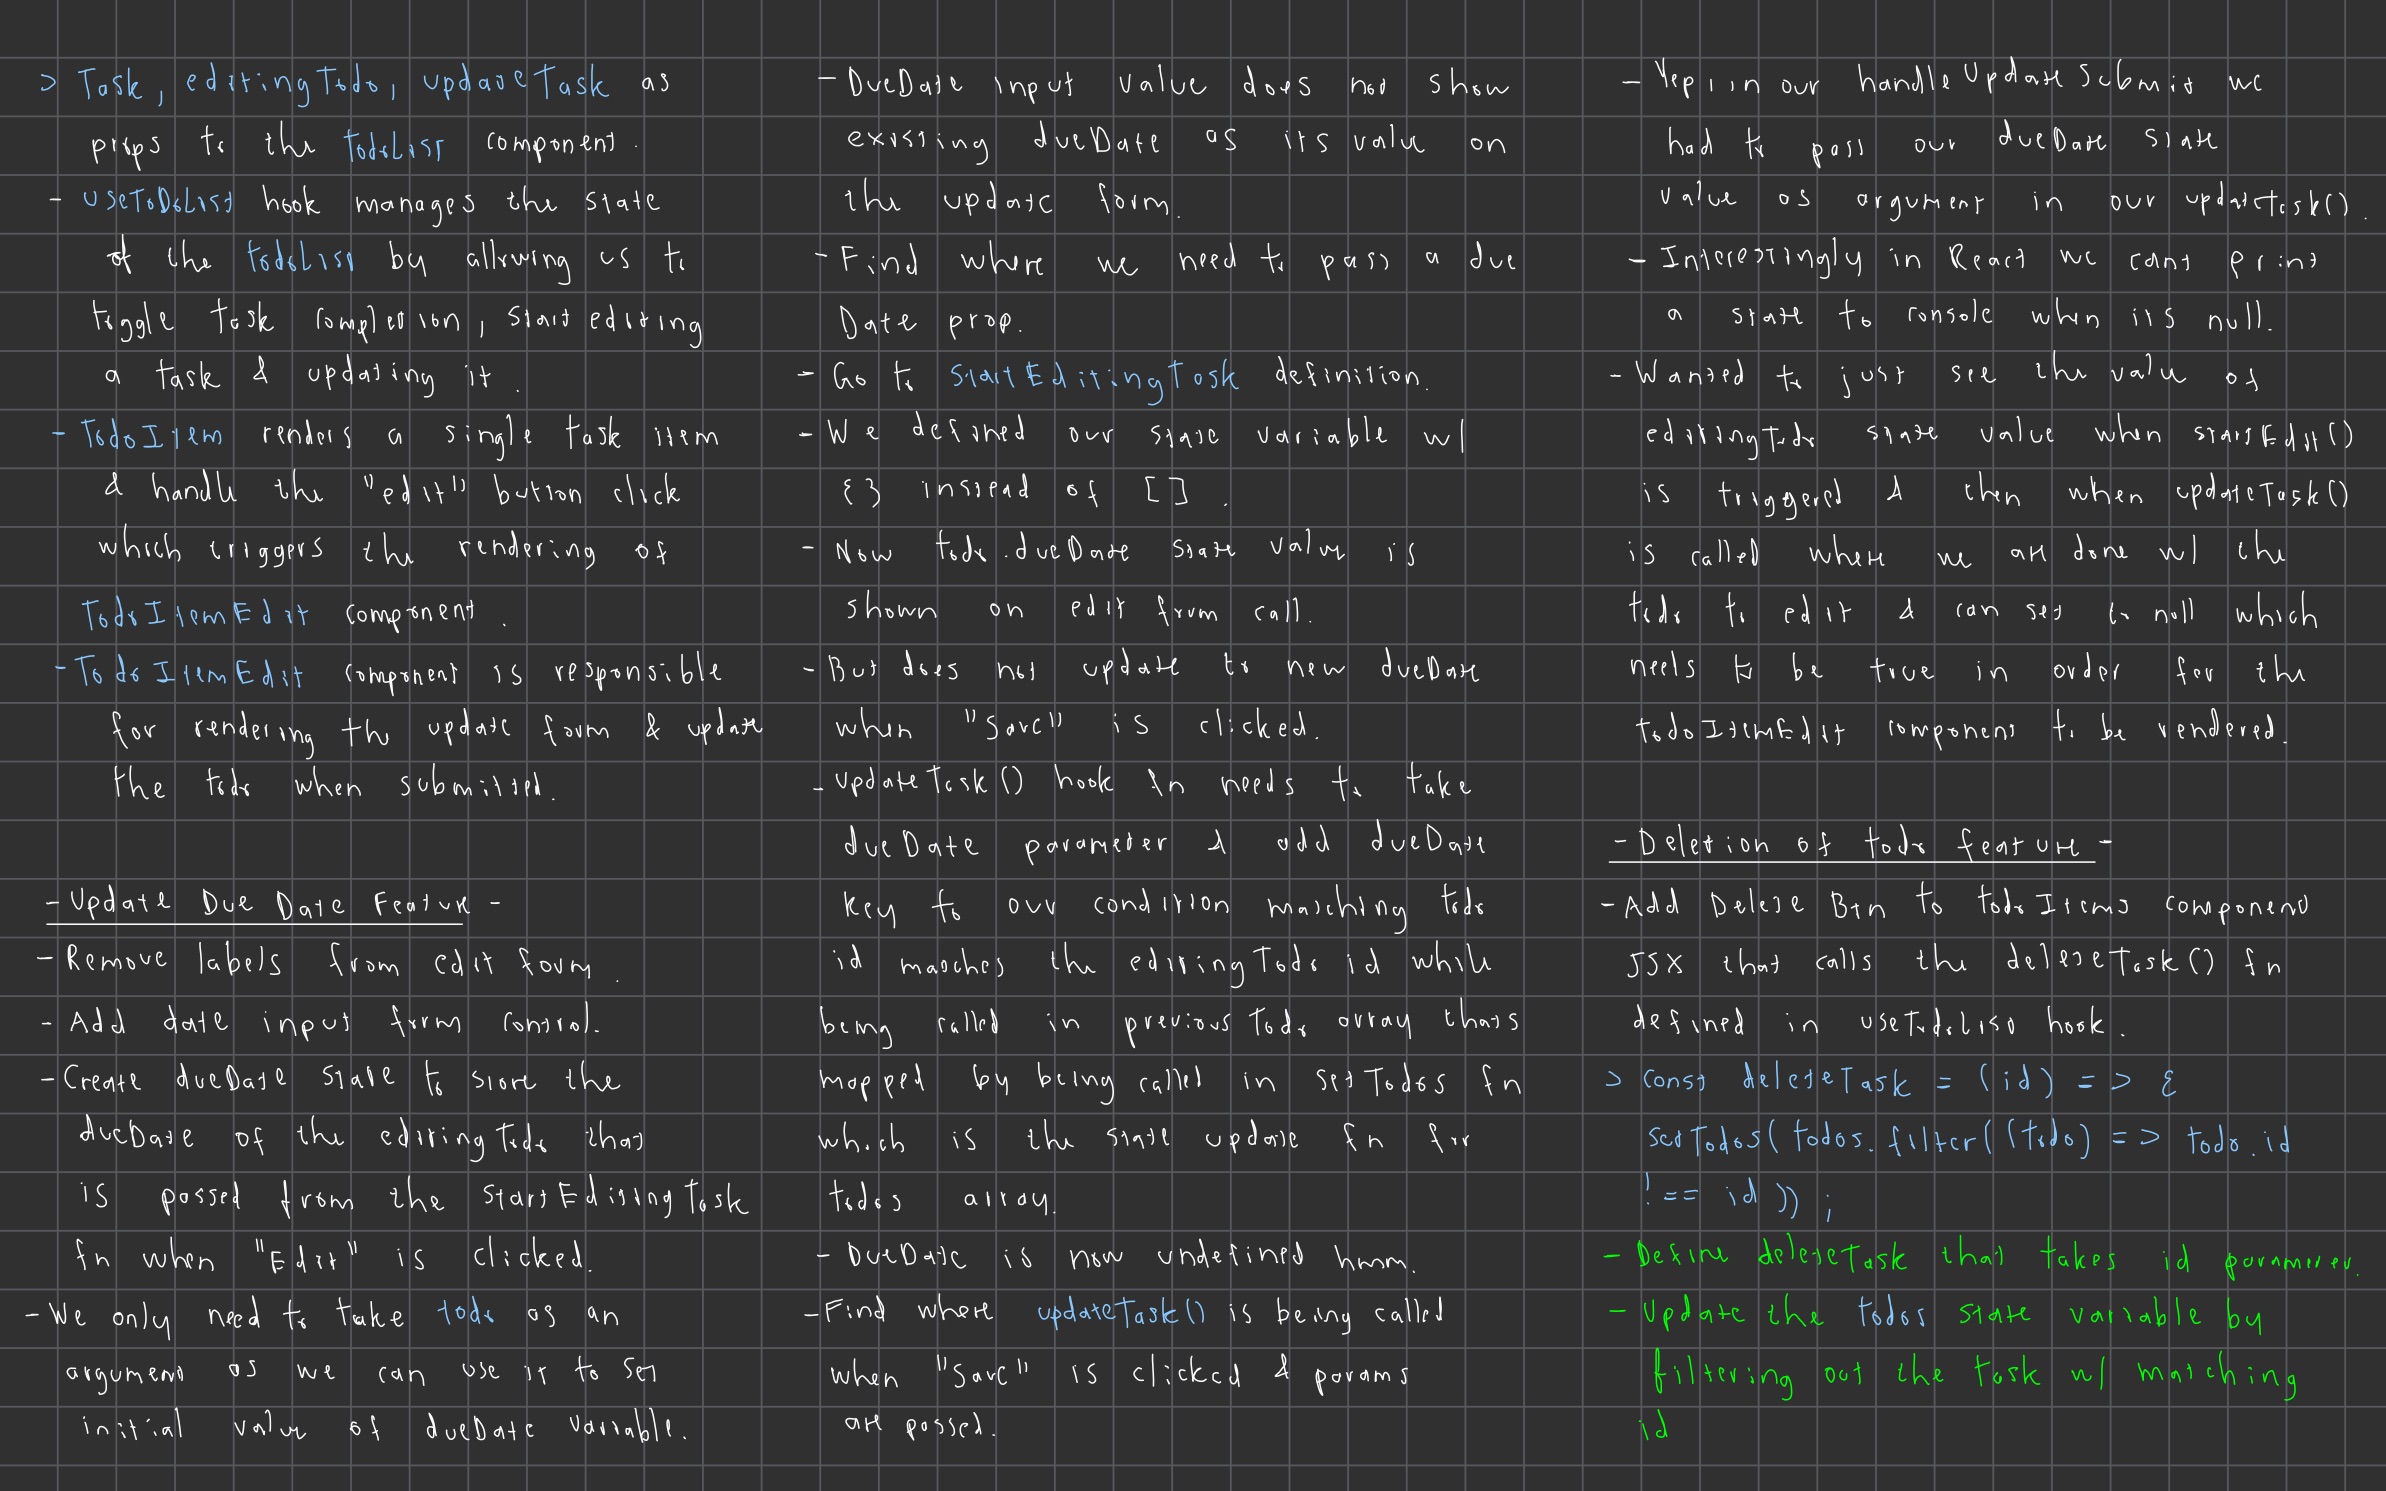 > Task, editingTodo, updateTask as
props to the todoList component.
- useToDoList hook manages the state
of the todoList by allowing us to
toggle task completion, start editing
a task & updating it.
- TodoItem renders a single task item
& handle the "edit" button click
which triggers the rendering of
TodoItemEdit component.
- TodoItemEdit component is responsible
for rendering the update form & update
the todo when submitted.
- Update Due Date Feature -
- Remove labels from edit form.
- Add date input form control.
- Create dueDate state to store the
dueDate of the editingTodo that
is passed from the startEditingTask
fn when "Edit" is clicked.
- We only need to take todo as an
argument as we can use it to set
initial value of dueDate variable.
- DueDate input value does not show
existing dueDate as its value on
the update form.
- Find where we need to pass a due
Date prop.
- Go to startEditingTask definition.
- We defined our state variable w/
{ } instead of [ ].
- Now todo.dueDate state value is
shown on edit from call.
- But does not update to new dueDate
when "Save" is clicked.
- updateTask() hook fn needs to take
dueDate parameter & add dueDate
key to our condition matching todo
id matches the editingTodo id while
being called in previous Todo array thats
mapped by being called in setTodos fn
which is the state update fn for
todos array.
- DueDate is now undefined hmm.
- Find where updateTask() is being called
when "Save" is clicked & params
are passed.
- Yep, in our handleUpdateSubmit we
had to pass our dueDate state
value as argument in our updateTask().
- Interestingly in React we cant print
a state to console when its null.
- Wanted to just see the value of
editingTodo state value when startEdit()
is triggered & then when updateTask()
is called where we are done w/ the
todo to edit & can set to null which
needs to be true in order for the
todoItemEdit component to be rendered.
- Deletion of todo feature -
- Add Delete Btn to todoItems component
JSX that calls the deleteTask() fn
defined in useTodoList hook.
> const deleteTask = (id) => {
setTodos(todos.filter((todo) => todo.id
!== id ));
- Define deleteTask that takes id parameter.
- Update the todos state variable by
filtering out the task w/ matching
id